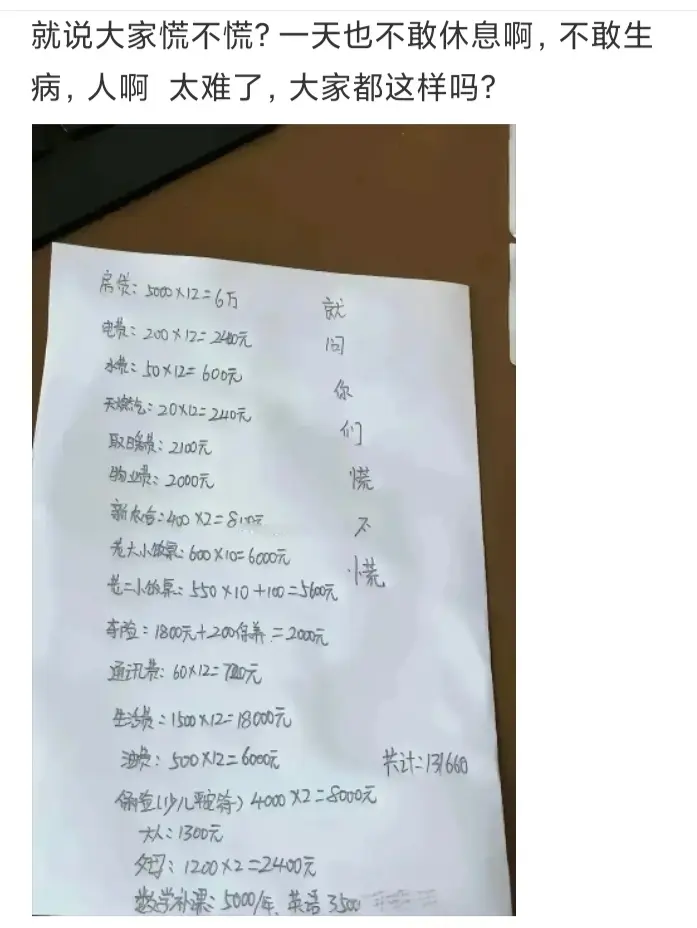 就说大家慌不慌？一天也不敢休息啊，不敢生
病，人啊 太难了，大家都这样吗？
房贷：5000×12=6万
电费：200×12=2400元
水费：50×12=600元
天燃气：20×12=240元
取暖费：2100元
物业费：2000元
新农合：400×2=800元
老大小饭桌：600×10=6000元
老二小饭桌：550×10+100=5600元
车险：1800元+200保养=2000元
通讯费：60×12=720元
生活费：1500×12=18000元
油费：500×12=6000元
保险(少儿平安符) 4000×2=8000元
大人：1300元
父母：1200×2=2400元
数学补课：5000/年、英语3500
就
问
你
们
慌
不
慌
共计：131660